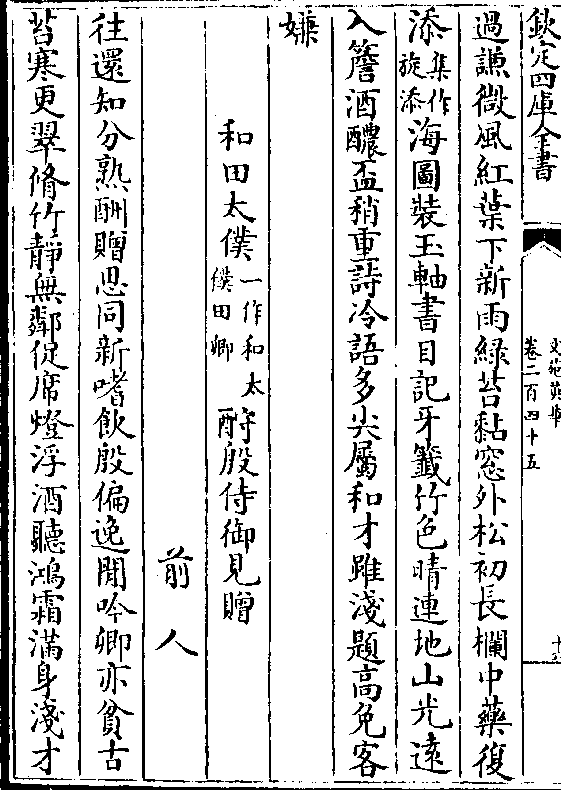 欽定四庫全書
文苑英華
卷二百四十五
過謙微風紅葉下新雨綠苔黏窓外松初長欄中藥復
添集作旋添海圖裝玉軸書目記牙籤竹色晴連地山光遠
入簷酒醲盃稍重詩冷語多尖屬和才雖淺題高免客
嫌
和田太僕一作和太僕田卿酧殷侍御見贈
前人
往還知分熟酬贈思同新嗜飲殷偏逸閒吟卿亦貧古
苔寒更翠脩竹靜無鄰促席燈浮酒聽鴻霜滿身淺才